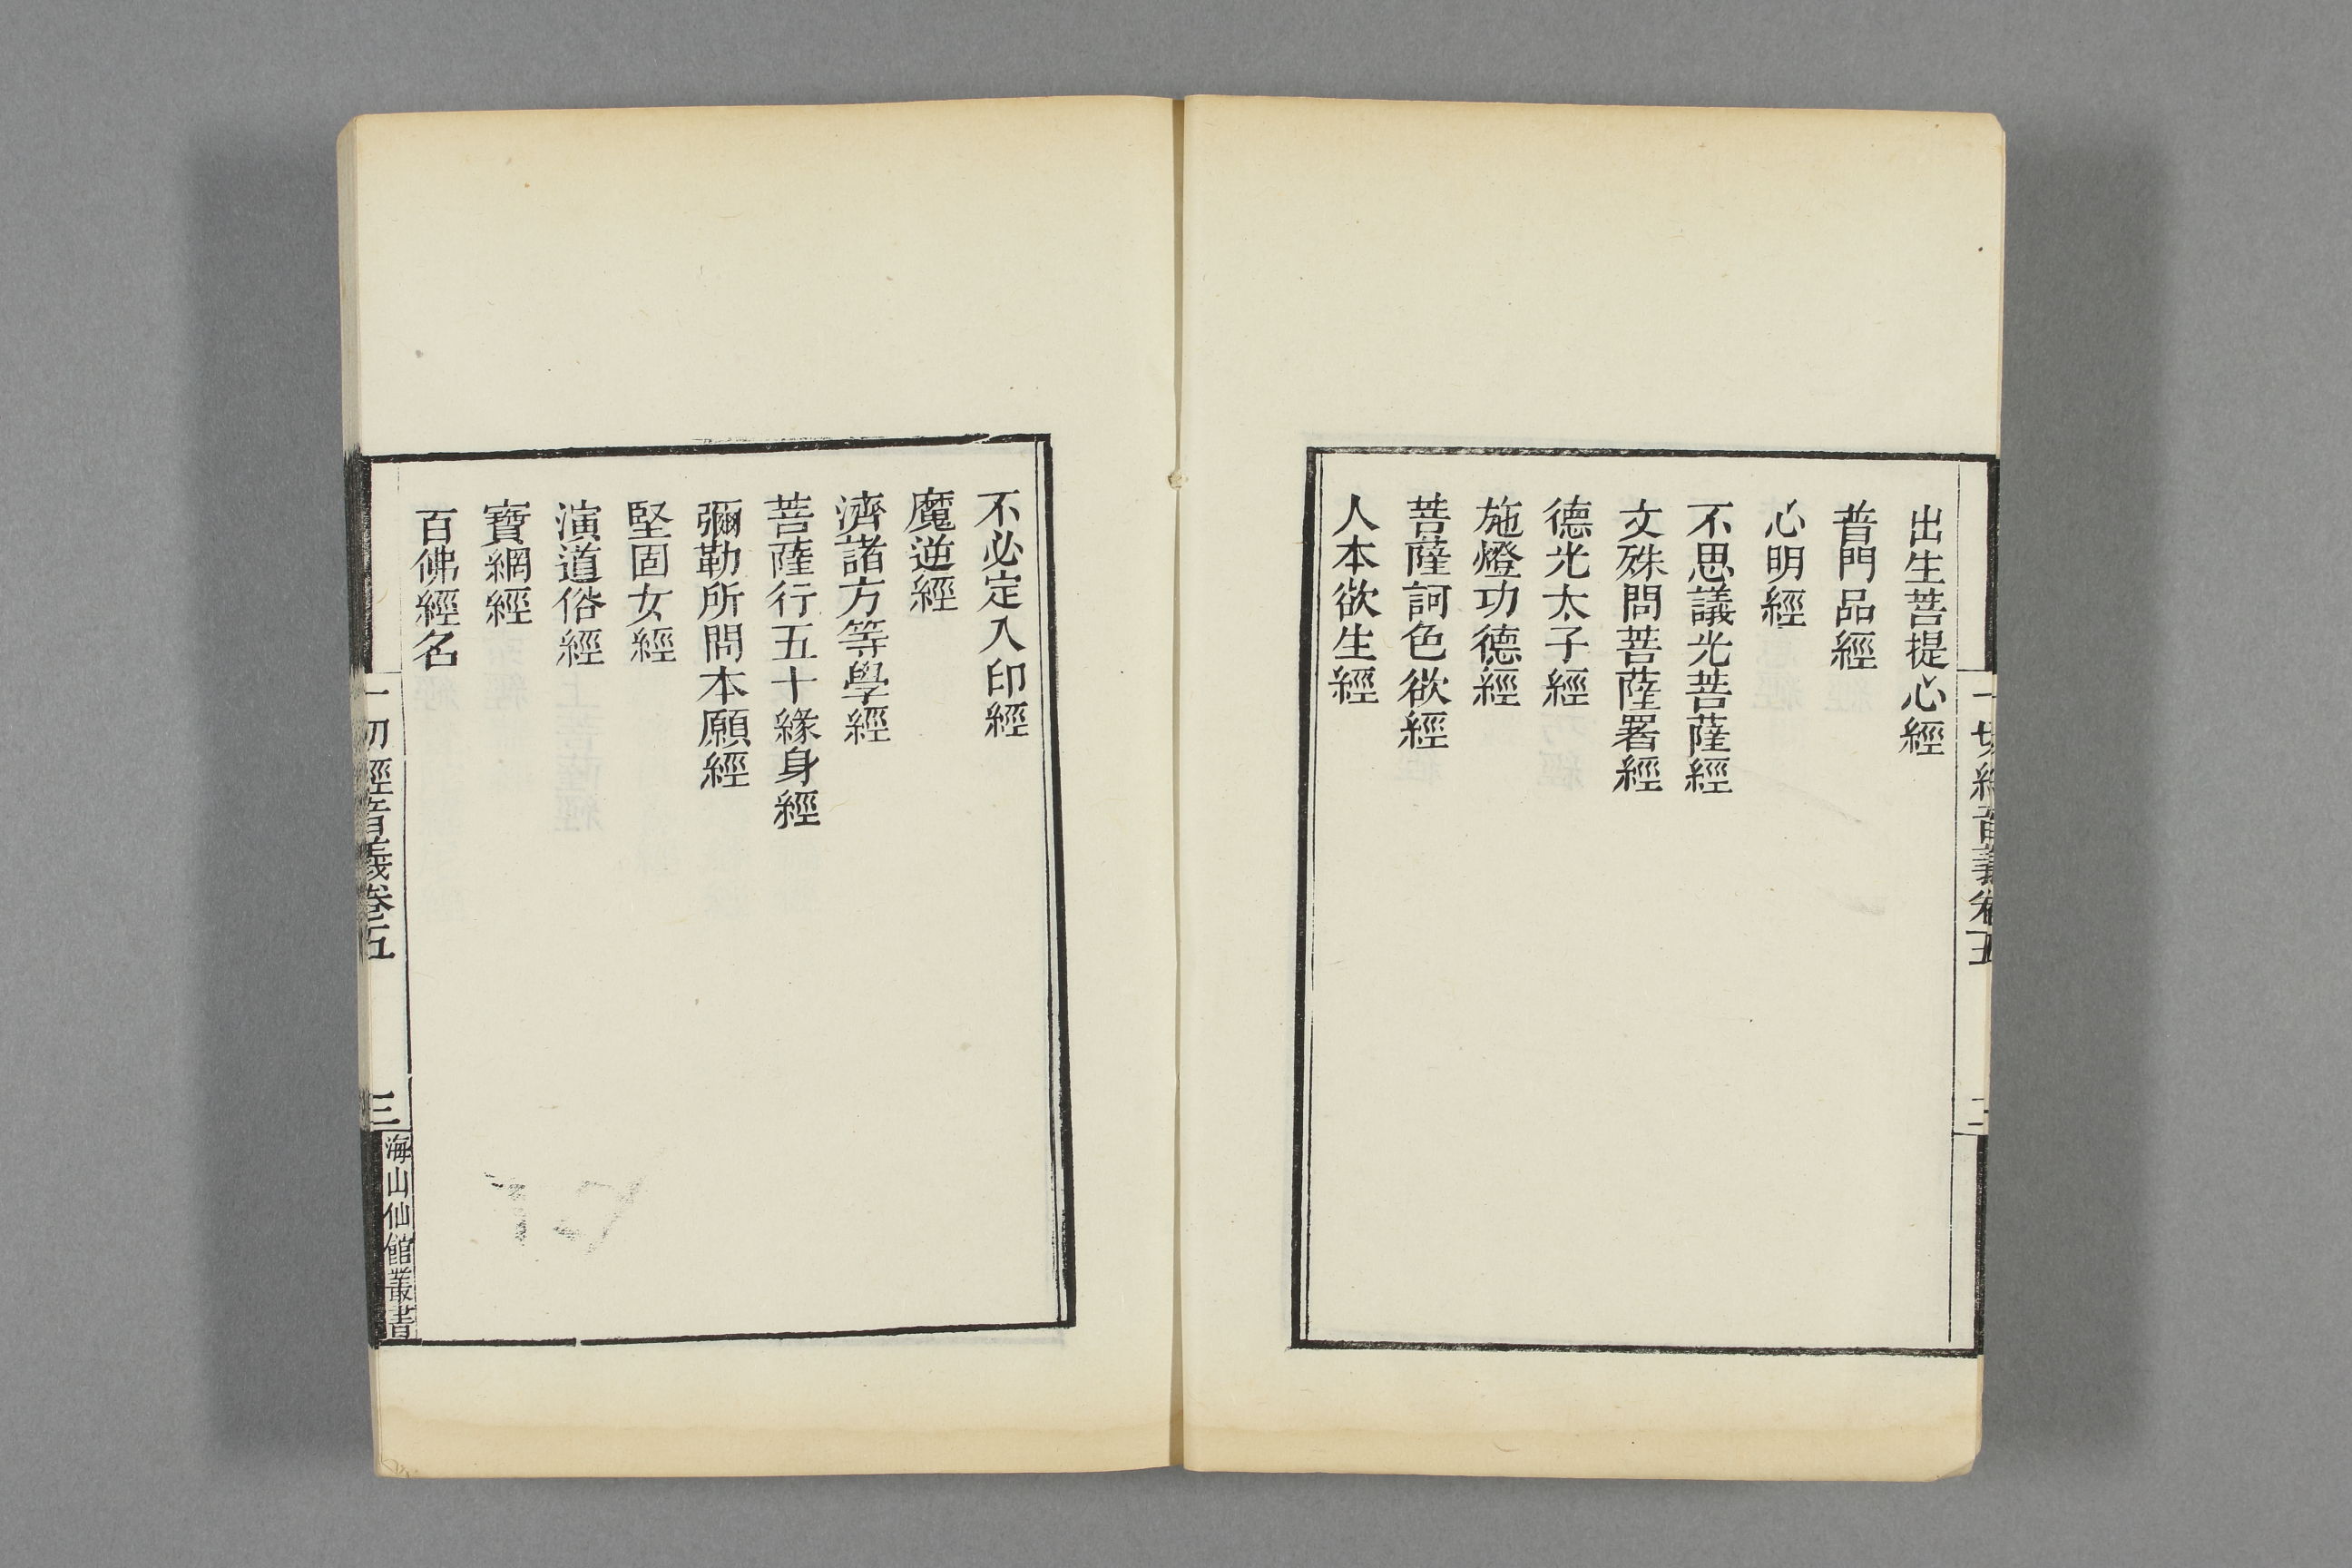 出生菩提心經
普門品經
心明經
不思議光菩薩經
文殊問菩薩署經
德光太子經
施燈功德經
菩薩訶色欲經
人本欲生經
一切經音義卷五
二
不必定入印經
魔逆經
濟諸方等學經
菩薩行五十緣身經
彌勒所問本願經
堅固女經
演道俗經
寶網經
百佛經名
一切經音義卷五
三
海山仙館叢書